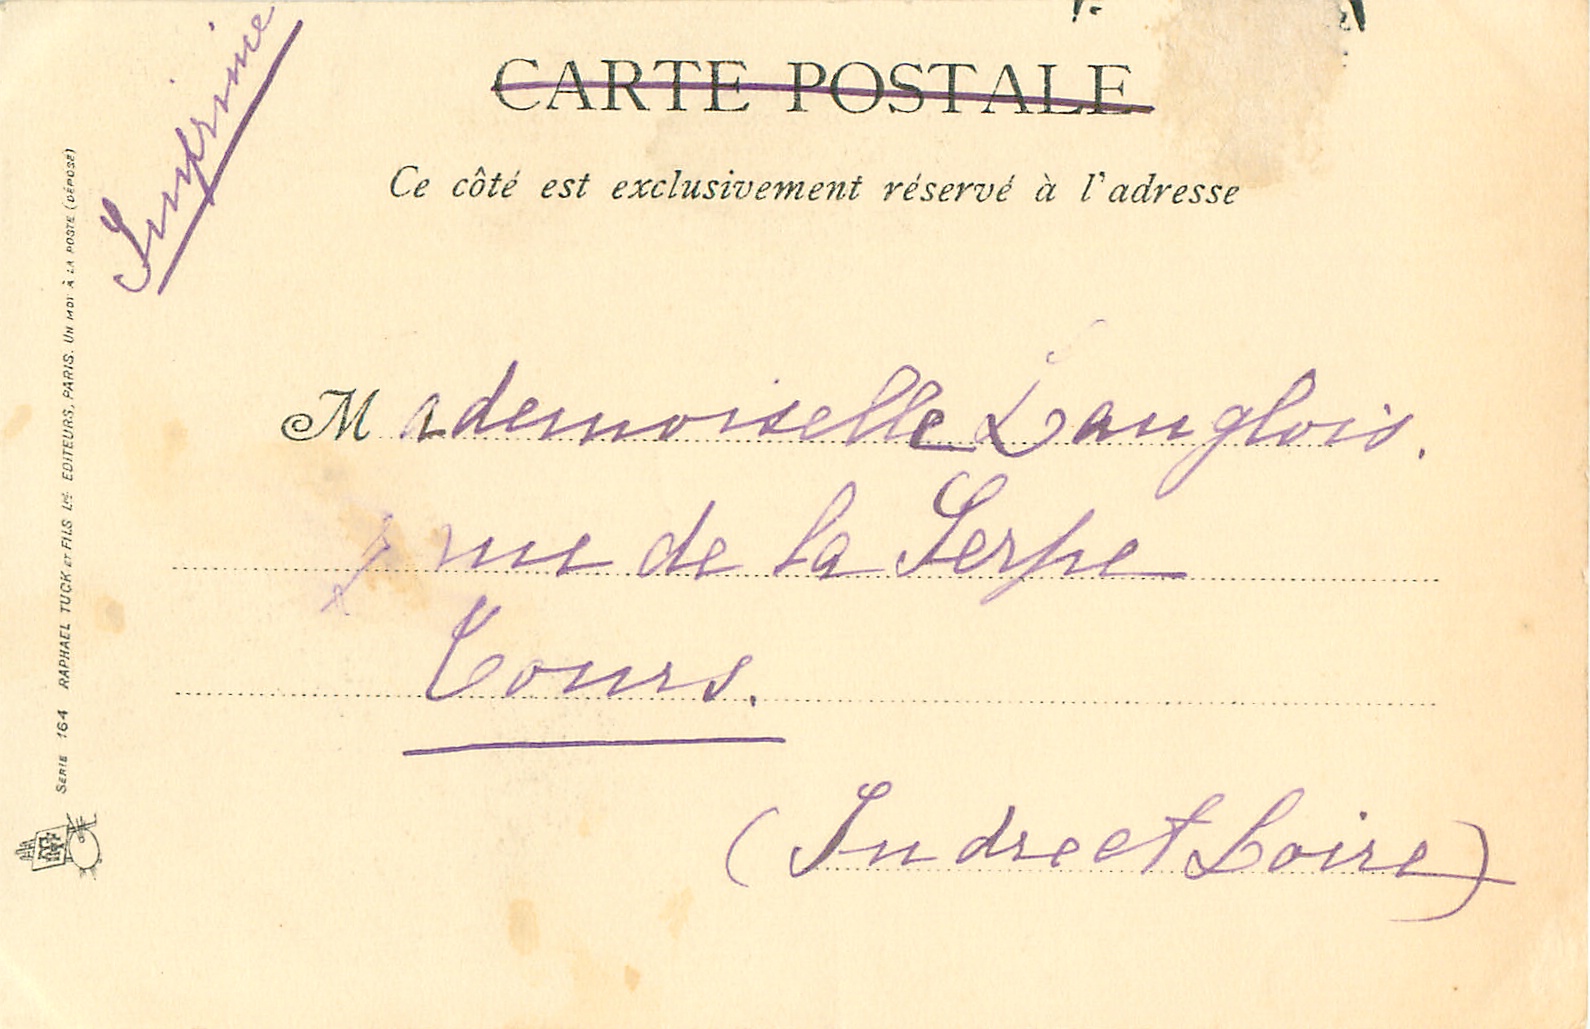 Imprimé
CARTE POSTALE
Ce côté est exclusivement réservé à l'adresse
Mademoiselle Langlois.
rue de la Serpe
Tours.
(Indre et Loire)
SERIE 164 RAPHAEL TUCK ET FILS Lté. EDITEURS, PARIS. UN MOT À LA POSTE (DÉPOSÉ)